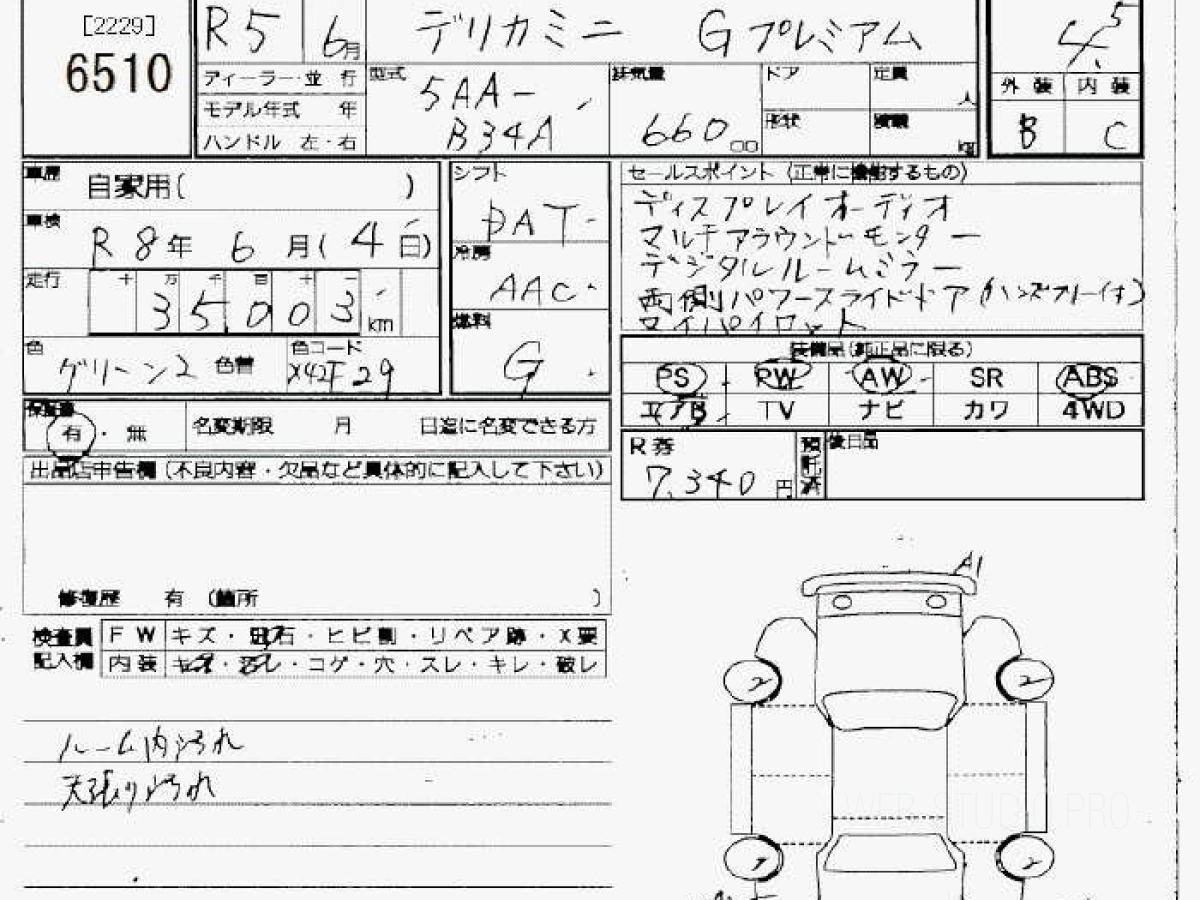 [2229]
6510
R5 6月
デリカミニ Gプレミアム
4.5
ディーラー・並 行
モデル年式 年
ハンドル 左・右
型式
5AA-
B34A
排気量
660 cc
ドア
定員
人
形状
積載
kg
外装 内装
B C
車歴
自家用( )
車検
R 8年 6 月( 4 日)
走行
十 万 千 百 十 一
35,003 km
色
グリーン2 色替
色コード
X42F29
シフト
DAT
冷房
AAC
燃料
G
セールスポイント (正常に機能するもの)
ディスプレイオーディオ
マルチアラウンドモニター
デジタルルームミラー
両側パワースライドドア(ハンズフリー付)
マイパイロット
装備品(純正品に限る)
PS PW AW SR ABS
エアB TV ナビ カワ 4WD
保証書
有・無
名変期限 月 日迄に名変できる方
R券
7,340 円
預託済
後日品
出品店申告欄(不良内容・欠品など具体的に記入して下さい)
修復歴 有 (箇所 )
検査員記入欄
FW キズ・飛石・ヒビ割・リペア跡・X要
内装 キズ・汚レ・コゲ・穴・スレ・キレ・破レ
ルーム内汚れ
天張り汚れ
A1
2 2
2
WEB STUDIO PRO